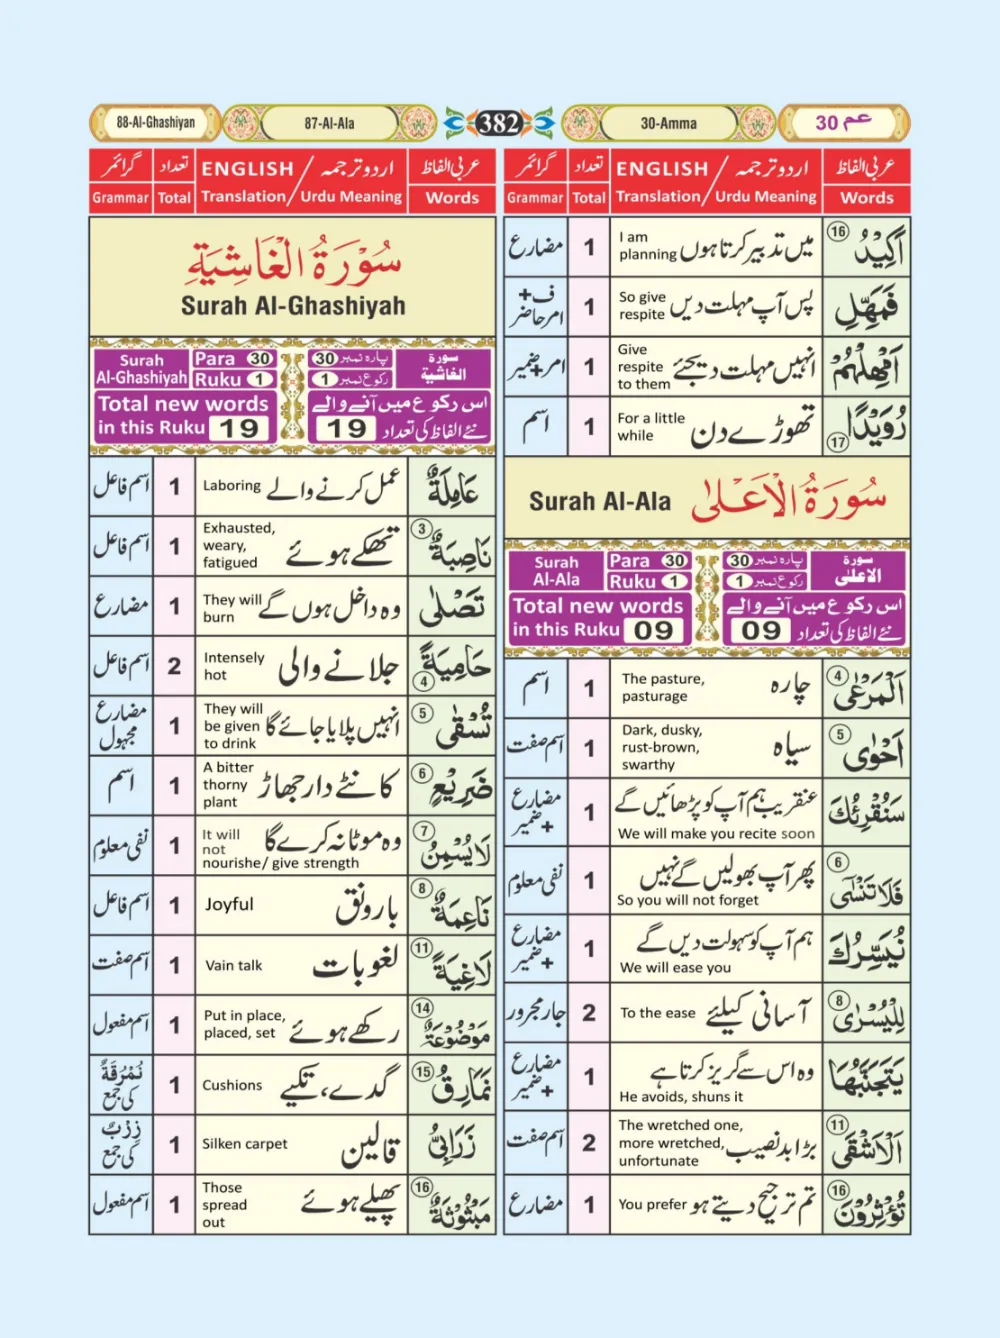 88-Al-Ghashiyan
87-Al-Ala
382
30-Amma
عم 30
عربی الفاظ
اردو ترجمہ / ENGLISH
تعداد
گرائمر
Words
Translation/ Urdu Meaning
Total
Grammar
اَكِيْدُ ⑯
میں تدبیر کرتا ہوں
I am
planning
1
مضارع
فَمَهِّلِ
پس آپ مہلت دیں
So give
respite
1
ف+
امر حاضر
اَمْهِلْهُمْ
انہیں مہلت دیجئے
Give
respite
to them
1
امر+ضمیر
رُوَيْدًا ⑰
تھوڑے دن
For a little
while
1
اسم
سُوْرَةُ الْاَعْلٰی
Surah Al-Ala
Surah
Al-Ala
Para 30
Ruku 1
پارہ نمبر 30
رکوع نمبر 1
سورة
الاعلٰی
Total new words
in this Ruku 09
اس رکوع میں آنے والے
نئے الفاظ کی تعداد 09
الْمَرْعٰى ④
چارہ
The pasture,
pasturage
1
اسم
اَحْوٰى ⑤
سیاہ
Dark, dusky,
rust-brown,
swarthy
1
اسم صفت
سَنُقْرِئُكَ
عنقریب ہم آپ کو پڑھائیں گے
We will make you recite soon
1
مضارع
+ ضمیر
فَلَا تَنْسٰٓى ⑥
پھر آپ بھولیں گے نہیں
So you will not forget
1
نفی معلوم
نُيَسِّرُكَ
ہم آپ کو سہولت دیں گے
We will ease you
1
مضارع
+ ضمیر
لِلْيُسْرٰى ⑧
آسانی کیلئے
To the ease
2
جار مجرور
يَتَجَنَّبُهَا
وہ اس سے گریز کرتا ہے
He avoids, shuns it
1
مضارع
+ ضمیر
الْاَشْقَى ⑪
بڑا بد نصیب
The wretched one,
more wretched,
unfortunate
2
اسم صفت
تُؤْثِرُوْنَ ⑯
تم ترجیح دیتے ہو
You prefer
1
مضارع
عربی الفاظ
اردو ترجمہ / ENGLISH
تعداد
گرائمر
Words
Translation/ Urdu Meaning
Total
Grammar
سُوْرَةُ الْغَاشِيَةِ
Surah Al-Ghashiyah
Surah
Al-Ghashiyah
Para 30
Ruku 1
پارہ نمبر 30
رکوع نمبر 1
سورة
الغاشية
Total new words
in this Ruku 19
اس رکوع میں آنے والے
نئے الفاظ کی تعداد 19
عَامِلَةٌ
عمل کرنے والے
Laboring
1
اسم فاعل
نَاصِبَةٌ ③
تھکے ہوئے
Exhausted,
weary,
fatigued
1
اسم فاعل
تَصْلٰى
وہ داخل ہوں گے
They will
burn
1
مضارع
حَامِيَةً ④
جلانے والی
Intensely
hot
2
اسم فاعل
تُسْقٰى ⑤
انہیں پلایا جائے گا
They will
be given
to drink
1
مضارع
مجہول
ضَرِيْعٍ ⑥
کانٹے دار جھاڑ
A bitter
thorny
plant
1
اسم
لَا يُسْمِنُ ⑦
وہ موٹا نہ کرے گا
It will
not
nourishe/ give strength
1
نفی معلوم
نَاعِمَةٌ ⑧
بارونق
Joyful
1
اسم فاعل
لَاغِيَةً ⑪
لغو بات
Vain talk
1
اسم صفت
مَوْضُوْعَةٌ ⑭
رکھے ہوئے
Put in place,
placed, set
1
اسم مفعول
نَمَارِقُ ⑮
گدے، تکیے
Cushions
1
نُمْرُقَةٌ
کی جمع
زَرَابِيُّ
قالین
Silken carpet
1
زِرْبٌ
کی جمع
مَبْثُوْثَةٌ ⑯
پھیلے ہوئے
Those
spread
out
1
اسم مفعول